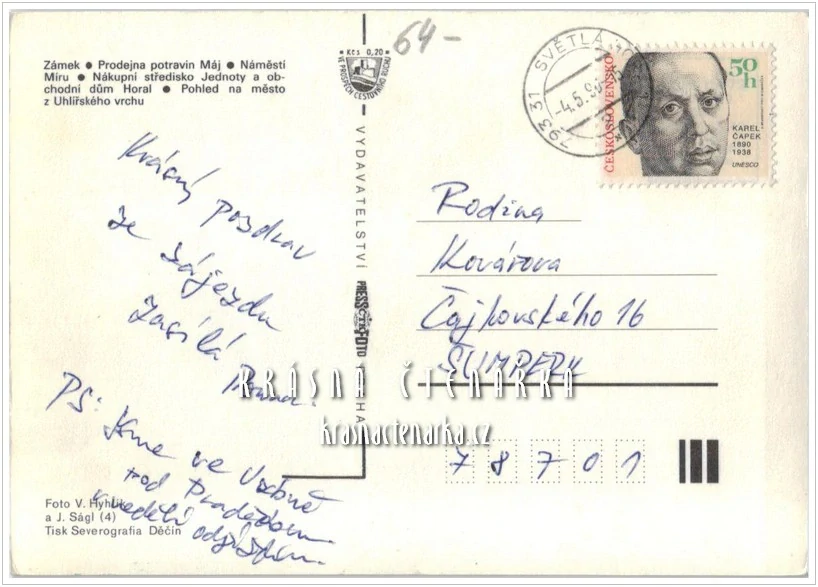 Zámek ● Prodejna potravin Máj ● Náměstí
Míru ● Nákupní středisko Jednoty a ob-
chodní dům Horal ● Pohled na město
z Uhlířského vrchu
Kčs 0,20
VE PROSPĚCH CESTOVNÍHO RUCHU
64-
793 31 SVĚTLÁ
-4.5.9
ČESKOSLOVENSKO
50 h
KAREL
ČAPEK
1890
1938
UNESCO
Krásný pozdrav
ze zájezdu
zasílá
PS: Jsme ve Vrbně
pod Pradědem.
v neděli
VYDAVATELSTVÍ PRESSFOTO PRAHA
Rodina
Kovářova
Čajkovského 16
ŠUMPERK
78701
KRÁSNÁ ČTENÁŘKA
krasnactenarka.cz
Foto V. Hyhlík
a J. Ságl (4)
Tisk Severografia Děčín